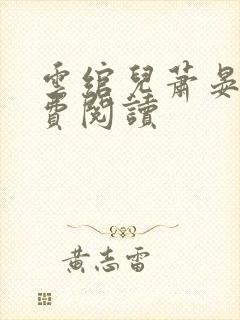 雲綰兒蕭晏
費閱讀
黃志雷